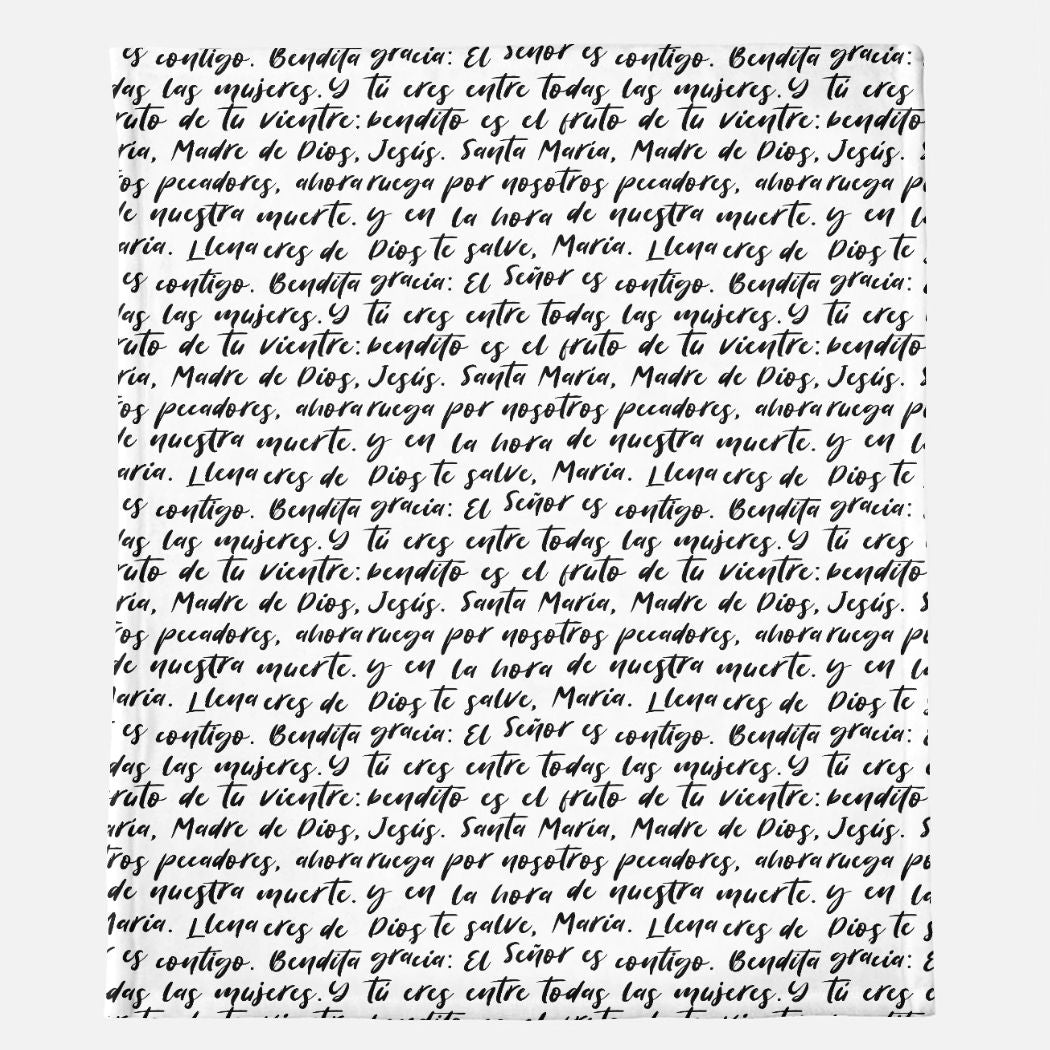 es contigo. Bendita gracia: El Señor es contigo. Bendita gracia:
das las mujeres. Y tú eres entre todas las mujeres. Y tú eres
ruto de tu vientre: bendito es el fruto de tu vientre: bendito
ría, Madre de Dios, Jesús. Santa María, Madre de Dios, Jesús.
os pecadores, ahora ruega por nosotros pecadores, ahora ruega p
e nuestra muerte. y en la hora de nuestra muerte. y en l
aría. Llena eres de Dios te salve, María. Llena eres de Dios te
es contigo. Bendita gracia: El Señor es contigo. Bendita gracia:
as las mujeres. Y tú eres entre todas las mujeres. Y tú eres
ruto de tu vientre: bendito es el fruto de tu vientre: bendito
ría, Madre de Dios, Jesús. Santa María, Madre de Dios, Jesús. S
os pecadores, ahora ruega por nosotros pecadores, ahora ruega p
e nuestra muerte. y en la hora de nuestra muerte. y en l
aría. Llena eres de Dios te salve, María. Llena eres de Dios te
es contigo. Bendita gracia: El Señor es contigo. Bendita gracia:
as las mujeres. Y tú eres entre todas las mujeres. Y tú eres
ruto de tu vientre: bendito es el fruto de tu vientre: bendito
ría, Madre de Dios, Jesús. Santa María, Madre de Dios, Jesús. S
ros pecadores, ahora ruega por nosotros pecadores, ahora ruega p
de nuestra muerte. y en la hora de nuestra muerte. y en la
aría. Llena eres de Dios te salve, María. Llena eres de Dios te s
es contigo. Bendita gracia: El Señor es contigo. Bendita gracia: E
das las mujeres. Y tú eres entre todas las mujeres. Y tú eres e
ruto de tu vientre: bendito es el fruto de tu vientre: bendito
aría, Madre de Dios, Jesús. Santa María, Madre de Dios, Jesús. S
tros pecadores, ahora ruega por nosotros pecadores, ahora ruega po
de nuestra muerte. y en la hora de nuestra muerte. y en la
María. Llena eres de Dios te salve, María. Llena eres de Dios te s
r es contigo. Bendita gracia: El Señor es contigo. Bendita gracia: E
das las mujeres. Y tú eres entre todas las mujeres. Y tú eres e